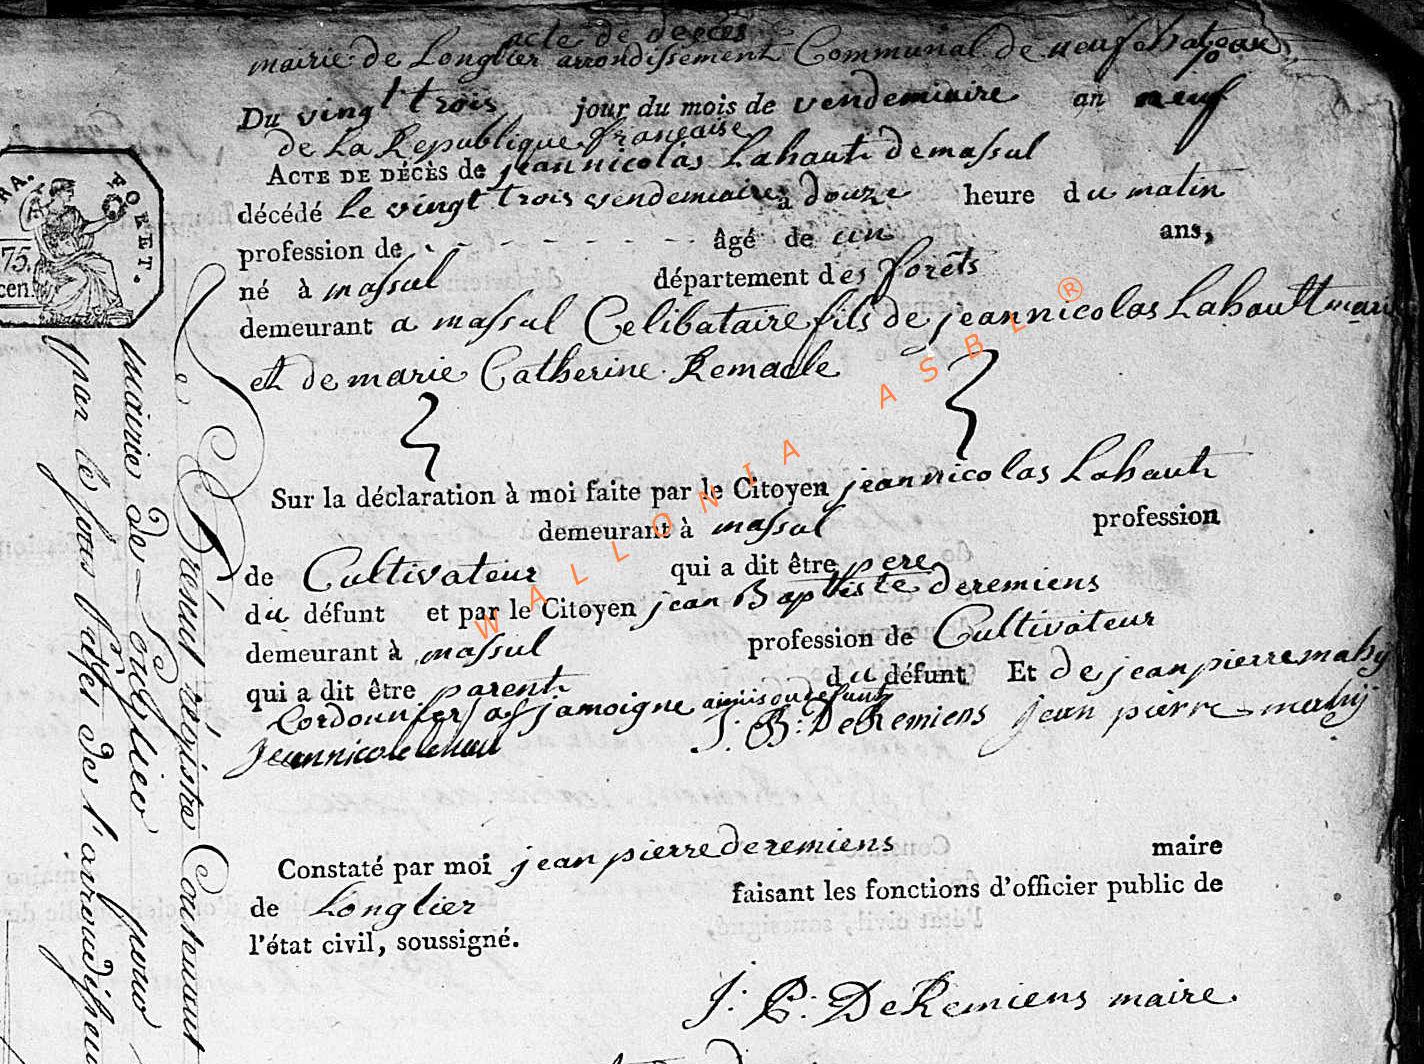 acte de deces
mairie de Longlier arrondissement Communal de neufchateau
Du vingt trois jour du mois de vendemiaire an neuf
de La Republique française
ACTE DE DÉCÈS de jean nicolas Lahaut de massul
décédé le vingt trois vendemiaire à douze heure du matin
profession de - - - - - - - - âgé de un ans,
né à massul département des forêts
demeurant a massul Celibataire fils de jean nicolas Lahautt
et de marie Catherine Remacle
Sur la déclaration à moi faite par le Citoyen jean nicolas Lahaut
demeurant à massul profession
de Cultivateur qui a dit être pere
du défunt et par le Citoyen jean Baptiste deremiens
demeurant à massul profession de Cultivateur
qui a dit être parent du défunt Et de jean pierre mahy
Cordonnier jamoigne amis du defunt
J. B. DeRemiens jean pierre mahy
Constaté par moi jean pierre deremiens maire
de Longlier faisant les fonctions d'officier public de
l'état civil, soussigné.
J. P. DeRemiens maire.
RA. FORET.
75.
cen.
Présent régistre Contenant
mairie de Longlier pour
par le sous préfet de l'arrondissem
WALLONIA ASBL ®